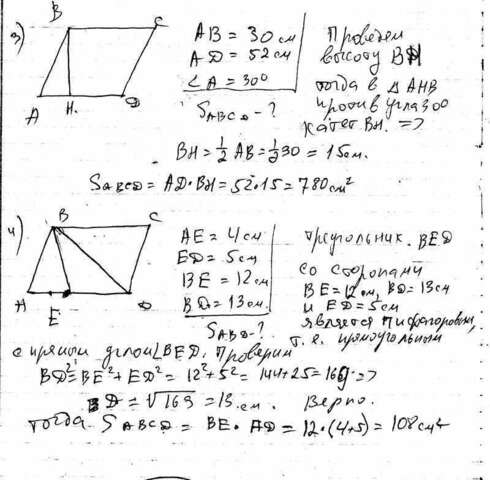 3)
B C
A H. D
AB = 30 см
AD = 52 см
∠A = 30°
SABCD - ?
Проведем
высоту BH
тогда в Δ AHB
против угла 30
катет BH. =>
BH = 1/2 AB = 1/2 30 = 15 см.
SABCD = AD·BH = 52·15 = 780 см²
4)
B C
A E D
AE = 4 см
ED = 5 см
BE = 12 см
BD = 13 см.
SABD - ?
треугольник. BED
со сторонами
BE = 12 см, BD = 13 см
и ED = 5 см
является пифагоровым,
т. е. прямоугольным
с прямым углом ∠BED. Проверим
BD² = BE² + ED² = 12² + 5² = 144 + 25 = 169 =>
BD = √169 = 13 см. Верно.
тогда SABCD = BE · AD = 12·(4+5) = 108 см²